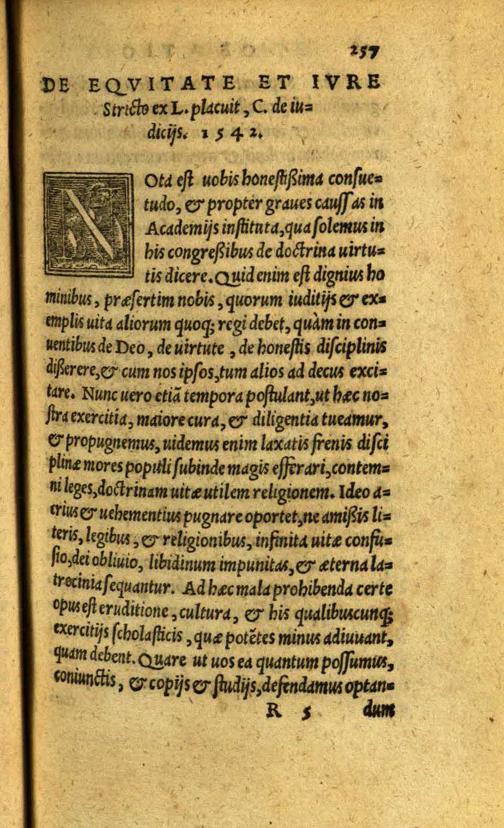 257
DE EQVITATE ET IVRE
Stricto ex L. placuit, C. de iu=
dicijs. 1542.
NOta est uobis honestißima consue=
tudo, & propter graues caussas in
Academijs instituta, qua solemus in
his congreßibus de doctrina uirtu=
tis dicere. Quid enim est dignius ho
minibus, præsertim nobis, quorum iuditijs & ex=
emplis uita aliorum quoq; regi debet, quàm in con=
uentibus de Deo, de uirtute, de honestis disciplinis
dißerere, & cum nos ipsos, tum alios ad decus exci=
tare. Nunc uero etiã tempora postulant, ut hæc no=
stra exercitia, maiore cura, & diligentia tueamur,
& propugnemus, uidemus enim laxatis frenis disci
plinæ mores populi subinde magis efferari, contem=
ni leges, doctrinam uitæ utilem religionem. Ideo a=
crius & uehementius pugnare oportet, ne amißis li=
teris, legibus, & religionibus, infinita uitæ confu=
sio, dei obliuio, libidinum impunitas, & æterna la=
trocinia sequantur. Ad hæc mala prohibenda certe
opus est eruditione, cultura, & his qualibuscunq;
exercitijs scholasticis, quæ potẽtes minus adiuuant,
quam debent. Quare ut uos ea quantum possumus,
coniunctis, & copijs & studijs, defendamus optan=
R 5 dum